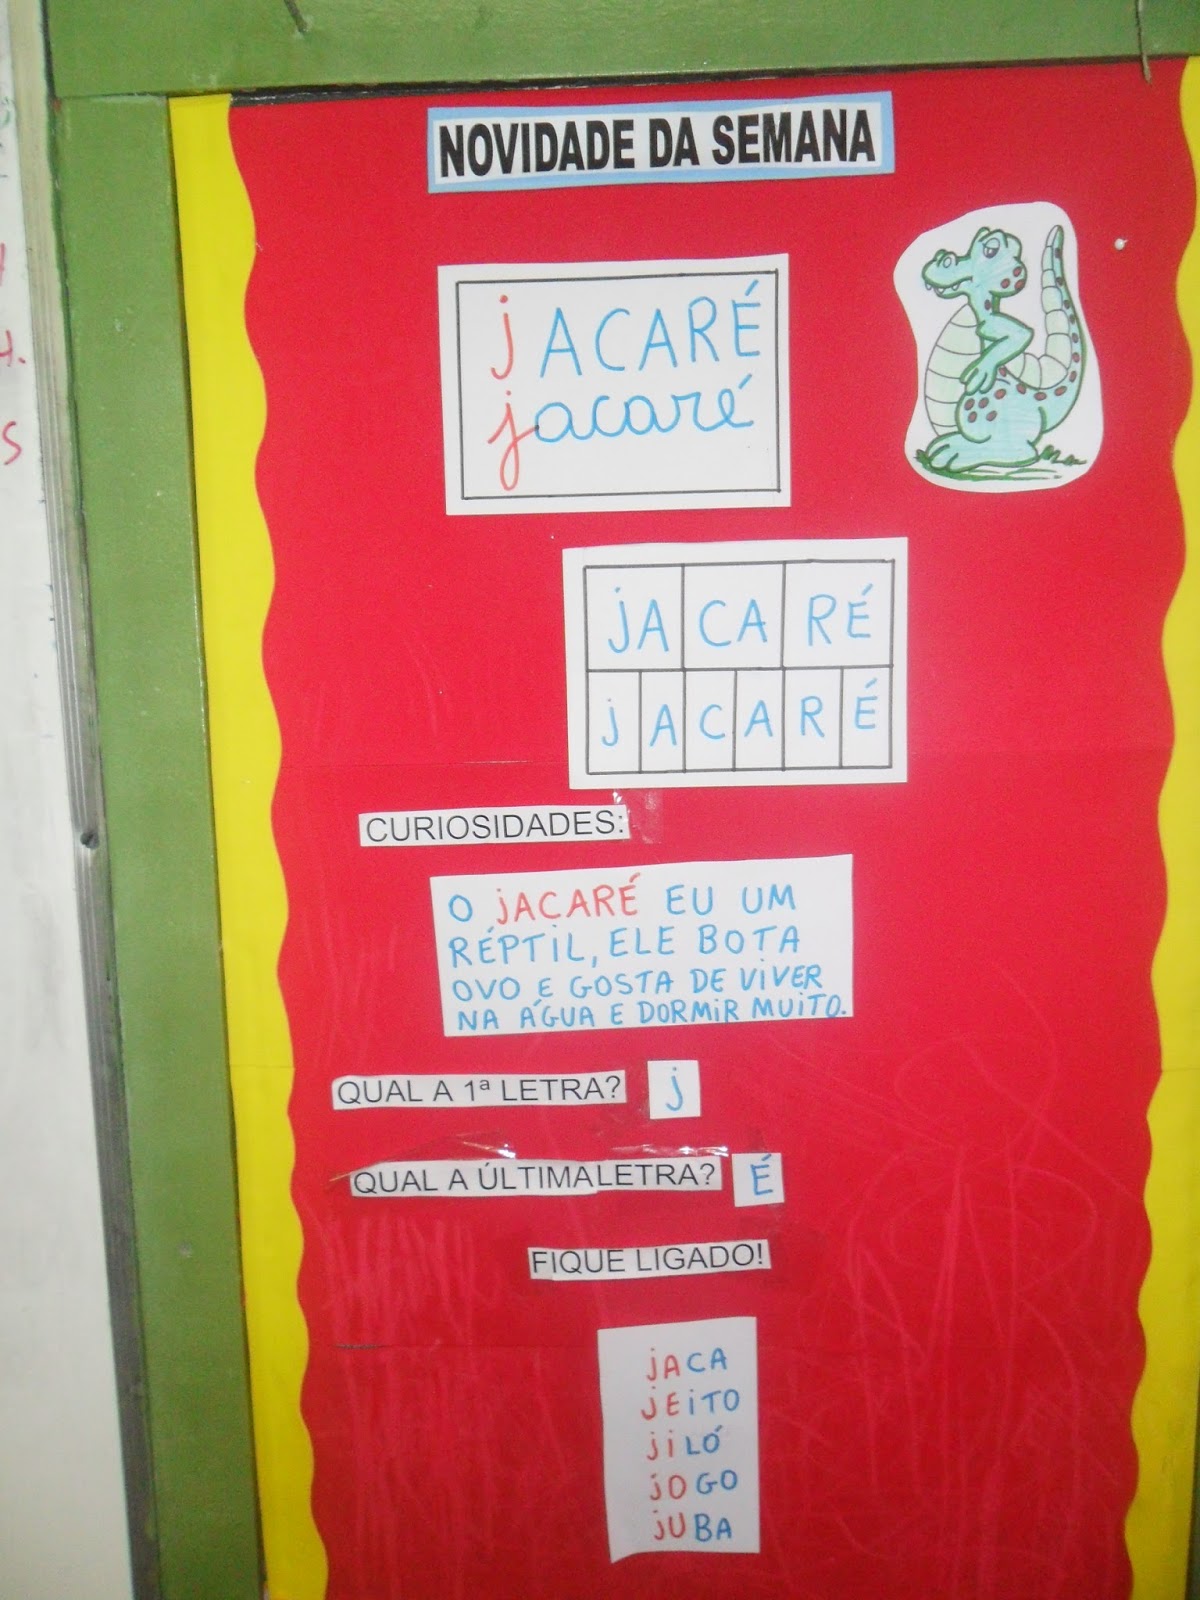 NOVIDADE DA SEMANA
jACARÉ
jacaré
jA CA RÉ
j A C A R É
CURIOSIDADES:
O jACARÉ EU UM
RÉPTiL, ELE BOTA
OVO E GOSTA DE ViVER
NA ÁGUA E DORMiR MUiTO.
QUAL A 1ª LETRA? j
QUAL A ÚLTIMALETRA? É
FIQUE LIGADO!
jACA
jEiTO
jiLÓ
jOGO
jUBA